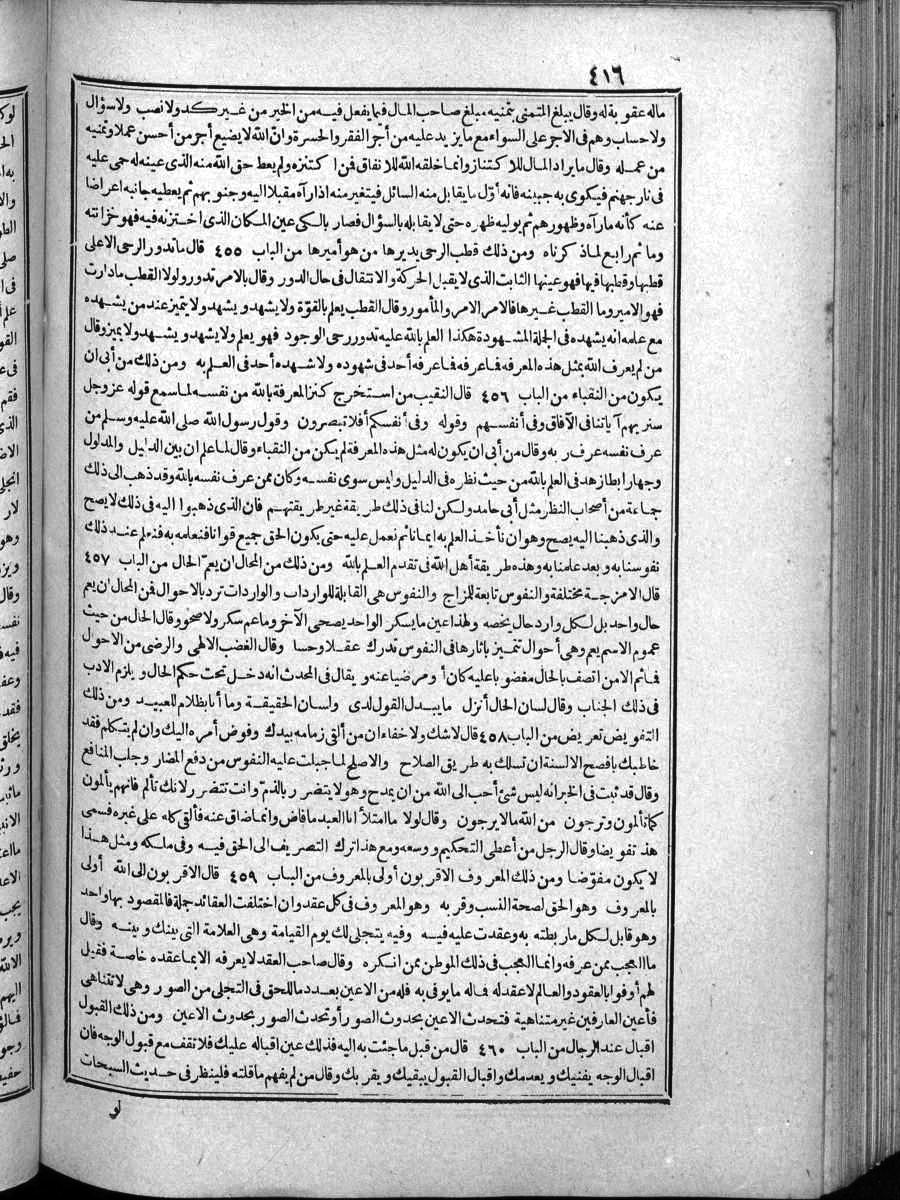 ٤١٦
ماله عقوبة له وقال يبلغ المتمنى بتمنيه مبلغ صاحب المال فيما يفعل فيه من الخير من غير كد ولا نصب ولا سؤال
ولا حساب وهم فى الاجر على السواء مع ما يزيد عليه من أجر الفقر والحسرة وان الله لا يضيع أجر من أحسن عملا وتمنيه
من عمله وقال ما يراد المال للاكتناز وانما خلقه الله للانفاق فمن اكتنزه ولم يعط حق الله منه الذى عينه له حمى عليه
فى نار جهنم فيكوى به جبينه فانه أول ما يقابل منه السائل فيتغير منه اذا رآه مقبلا اليه وجنوبهم ثم يعطيه جانبه اعراضا
عنه كأنه ما رآه وظهورهم ثم يوليه ظهره حتى لا يقابله بالسؤال فصار بالكى عين المكان الذى اختزنه فيه فهو خزانته
وما ثم رابع لماذكرناه ومن ذلك قطب الرحى يديرها من هو أميرها من الباب ٤٥٥ قال ما تدور الرحى الا على
قطبها وقطبها فيها فهو عينها الثابت الذى لا يقبل الحركة والانتقال فى حال الدور وقال بالامر تدور ولولا القطب ما دارت
فهو الامير وما القطب غيرها فالامر الامر والمأمور وقال القطب يعلم بالقوة ولا يشهد ويشهد ولا يتميز عند من يشهده
مع علمه انه يشهده فى الجملة المشهودة هكذا العلم بالله عليه تدور رحى الوجود فهو يعلم ولا يشهد ويشهد ولا يميز وقال
من لم يعرف الله بمثل هذه المعرفة فما عرفه فما عرفه أحد فى شهوده ولا شهده أحد فى العلم به ومن ذلك من أبى ان
يكون من النقباء من الباب ٤٥٦ قال النقيب من استخرج كنز المعرفة بالله من نفسه لما سمع قوله عز وجل
سنريهم آياتنا فى الآفاق وفى أنفسهم وقوله وفى أنفسكم أفلا تبصرون وقول رسول الله صلى الله عليه وسلم من
عرف نفسه عرف ربه وقال من أبى ان يكون له مثل هذه المعرفة لم يكن من النقباء وقال لما علم ان بين الدليل والمدلول
وجها رابطا زهد فى العلم بالله من حيث نظره فى الدليل وليس سوى نفسه وكان ممن عرف نفسه بالله وقد ذهب الى ذلك
جماعة من أصحاب النظر مثل أبى حامد ولكن لنا فى ذلك طريقة غير طريقتهم فان الذى ذهبوا اليه فى ذلك لا يصح
والذى ذهبنا اليه يصح وهو ان نأخذ العلم به ايمانا ثم نعمل عليه حتى يكون الحق جميع قوانا فنعلمه به فنعلم عند ذلك
نفوسنا به وبعد علمنا به وهذه طريقة أهل الله فى تقدم العلم بالله ومن ذلك من المحال ان يعم الحال من الباب ٤٥٧
قال الامزجة مختلفة والنفوس تابعة للمزاج والنفوس هى القابلة للواردات والواردات ترد بالاحوال فمن المحال ان يعم
حال واحد بل لكل وارد حال يخصه ولهذا عين ما يسكر الواحد يصحى الآخر وما عم سكر ولا صحو وقال الحال من حيث
عموم الاسم يعم وهى أحوال تتميز بآثارها فى النفوس تدرك عقلا وحسا وقال الغضب الالهى والرضى من الاحوال
فما ثم الا من اتصف بالحال مغضوبا عليه كان أو مرضيا عنه ويقال فى المحدث انه دخل تحت حكم الحال ويلزم الادب
فى ذلك الجناب وقال لسان الحال أنزل ما يبدل القول لدى ولسان الحقيقة وما أنا بظلام للعبيد ومن ذلك
التفويض تعريض من الباب ٤٥٨ قال لاشك ولا خفاء ان من ألقى زمامه بيدك وفوض أمره اليك وان لم يتكلم فقد
خاطبك بافصح الالسنة ان تسلك به طريق الصلاح والاصلح لما جبلت عليه النفوس من دفع المضار وجلب المنافع
وقال قد ثبت فى الخبر انه ليس شئ أحب الى الله من ان يمدح وهو لا يتضرر بالذم وانت تتضرر لانك تألم فانهم يألمون
كما تألمون وترجون من الله ما لا يرجون وقال لولا ما امتلأ انا العبد ما فاض وانما ضاق عنه فألقى كله على غيره فسمى
هذا تفويضا وقال الرجل من أعطى التحكيم ووسعه ومع هذا ترك التصريف الى الحق فيه وفى ملكه ومثل هذا
لا يكون مفوضا ومن ذلك المعروف الاقربون أولى بالمعروف من الباب ٤٥٩ قال الاقربون الى الله أولى
بالمعروف وهو الحق لصحة النسب وقربه وهو المعروف فى كل عقد وان اختلفت العقائد جملة فالمقصود بها واحد
وهو قابل لكل ما ربطته به وعقدت عليه فيه وفيه يتجلى لك يوم القيامة وهى العلامة التى بينك وبينه وقال
ما العجب ممن عرفه وانما العجب فى ذلك الموطن ممن انكره وقال صاحب العقد لا يعرفه الا بما عقده خاصة فقيل
لهم أوفوا بالعقود والعالم لا عقد له فماله ما يوفى به فله من الاعين بعدد ما للحق فى التجلى من الصور وهى لا تتناهى
فأعين العارفين غير متناهية فتحدث الاعين بحدوث الصور أو تحدث الصور بحدوث الاعين ومن ذلك القبول
اقبال عند الرجال من الباب ٤٦٠ قال من قبل ما جئت به اليه فذلك عين اقباله عليك فلا تقف مع قبول الوجه فان
اقبال الوجه يفنيك ويعدمك واقبال القبول يبقيك ويقربك وقال من لم يفهم ما قلته فلينظر فى حديث السبحات
لو